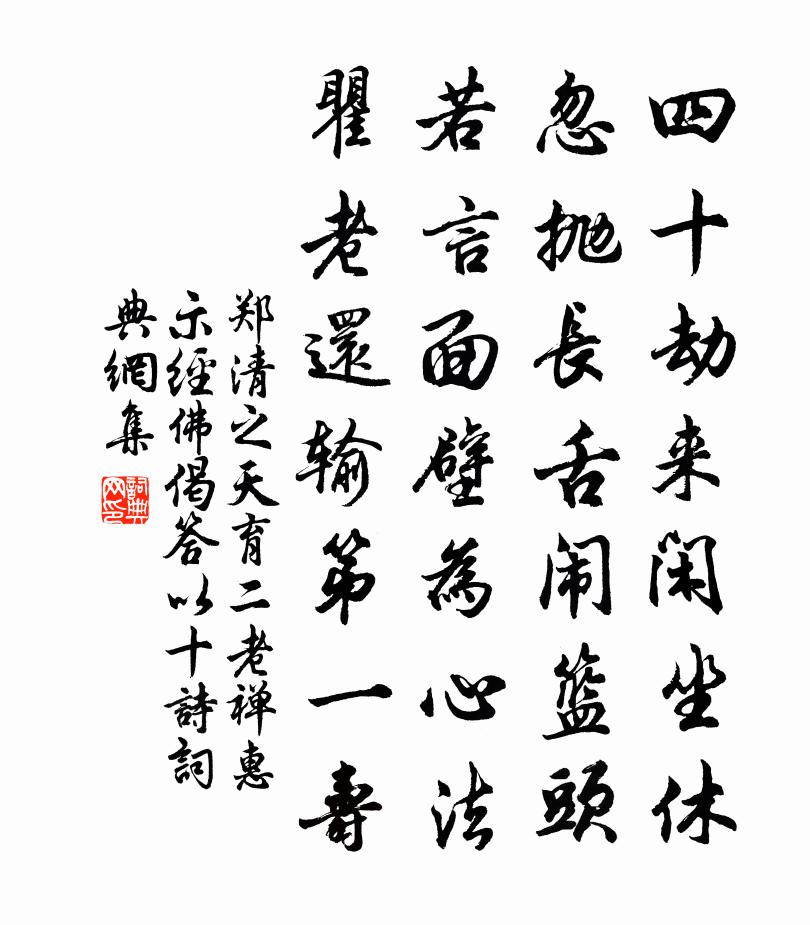 四十劫来閑坐休
忽抛長舌闹籃頭
若言面壁為心法
瞿老還输第一壽
郑清之天育二老禅惠
示經佛偈答以十詩詞
典網集
詞典网印